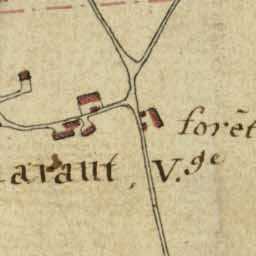 forêt
arant, V.ge